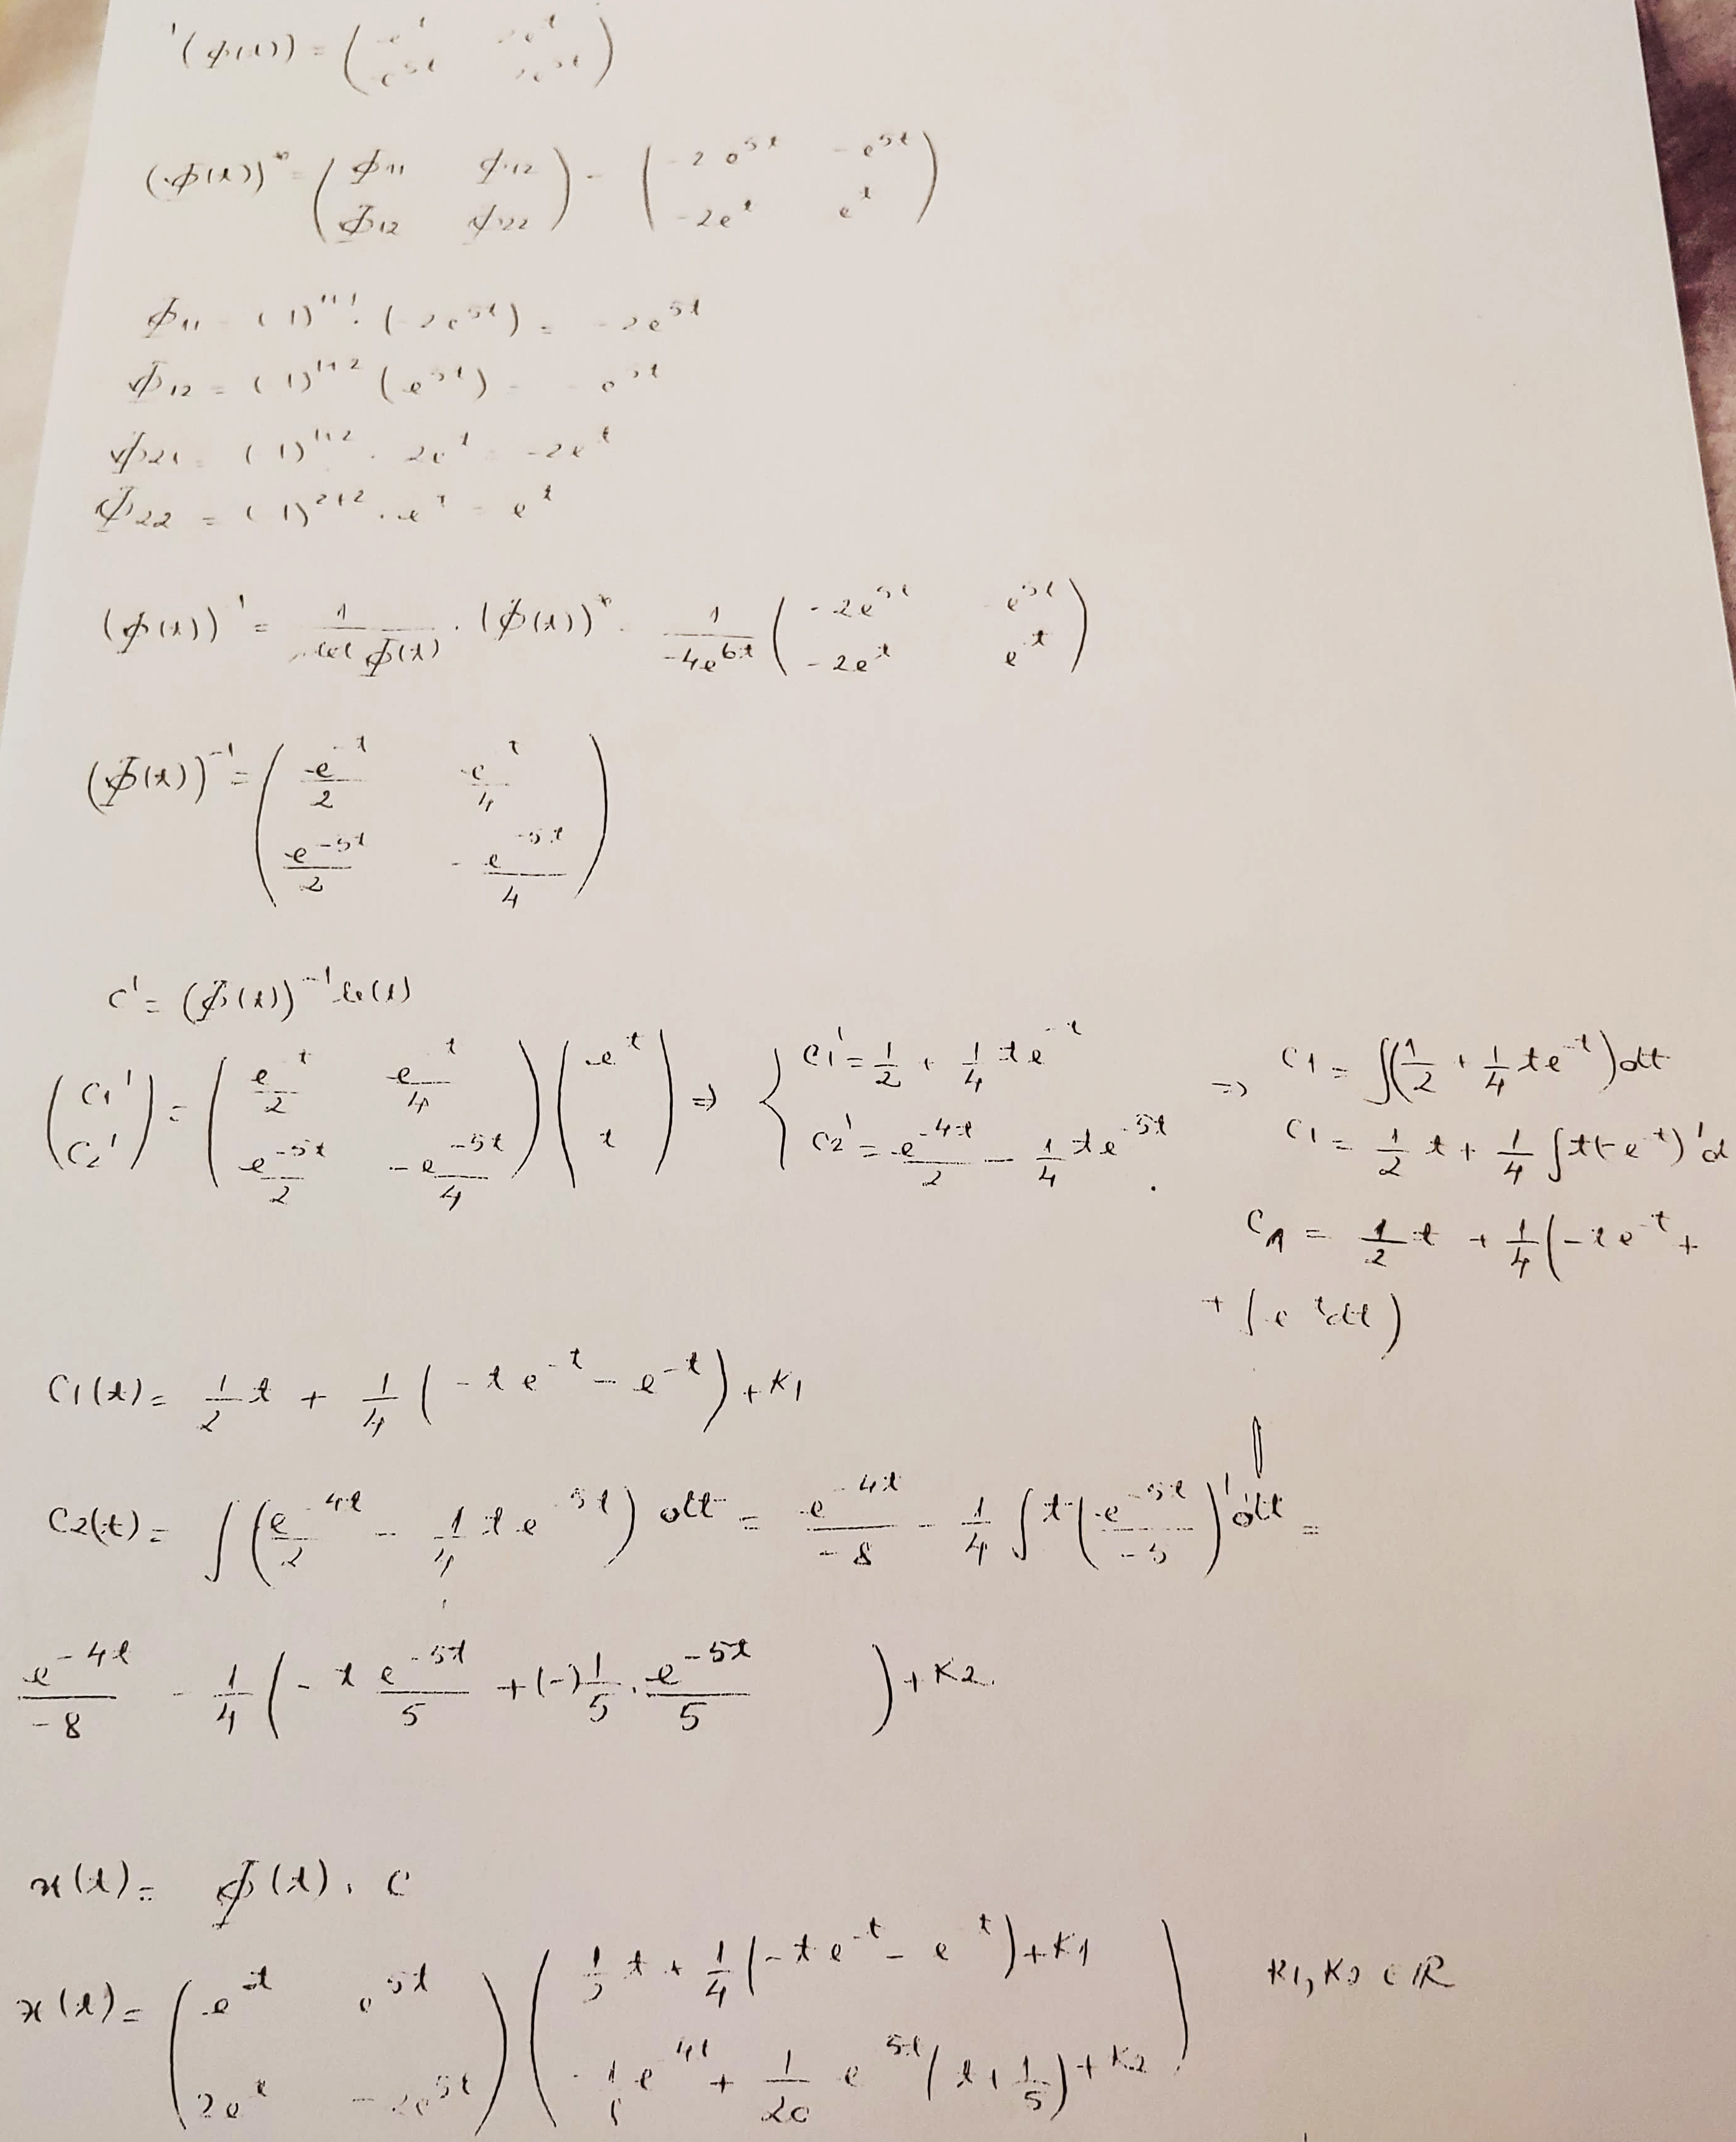 (ϕ(t)) = ( e^t 2e^t
e^5t 2e^5t )
(ϕ(t))* = ( ϕ11 ϕ12
ϕ12 ϕ22 ) = ( -2e^5t -e^5t
-2e^t e^t )
ϕ11 = (1)^1+1 · (-2e^5t) = -2e^5t
ϕ12 = (1)^1+2 (e^5t) = -e^5t
ϕ21 = (1)^1+2 · 2e^t = -2e^t
ϕ22 = (1)^2+2 · e^t = e^t
(ϕ(t))^1 = 1/det ϕ(t) · (ϕ(t))* · 1/-4e^6t ( -2e^5t e^5t
-2e^t e^t )
(ϕ(t))^-1 = ( e^-t/2 e^t/4
e^-5t/2 -e^-5t/4 )
C' = (ϕ(t))^-1 b(t)
( C1'
C2' ) = ( e^t/2 e^t/4
e^-5t/2 -e^-5t/4 ) ( e^t
t ) => { C1' = 1/2 + 1/4 te^-t
C2' = e^-4t/2 - 1/4 te^-5t
=> C1 = ∫(1/2 + 1/4 te^-t)dt
C1 = 1/2 t + 1/4 ∫t(-e^-t)'d
C1 = 1/2 t + 1/4 (-te^-t +
+ ∫e^t dt)
C1(t) = 1/2 t + 1/4 (-te^-t - e^-t) + K1
C2(t) = ∫(e^-4t/2 - 1/4 te^5t) dt = e^-4t/-8 - 1/4 ∫t(e^-5t/-5)'dt =
e^-4t/-8 - 1/4 (-t e^-5t/5 + (-)1/5 · e^-5t/5 ) + K2
x(t) = ϕ(t) · C
x(t) = ( e^t e^5t
2e^t -2e^5t ) ( 1/2 t + 1/4 (-te^-t - e^t) + K1
-1/8 e^4t + 1/20 e^5t (t + 1/5) + K2 )
K1, K2 ∈ R